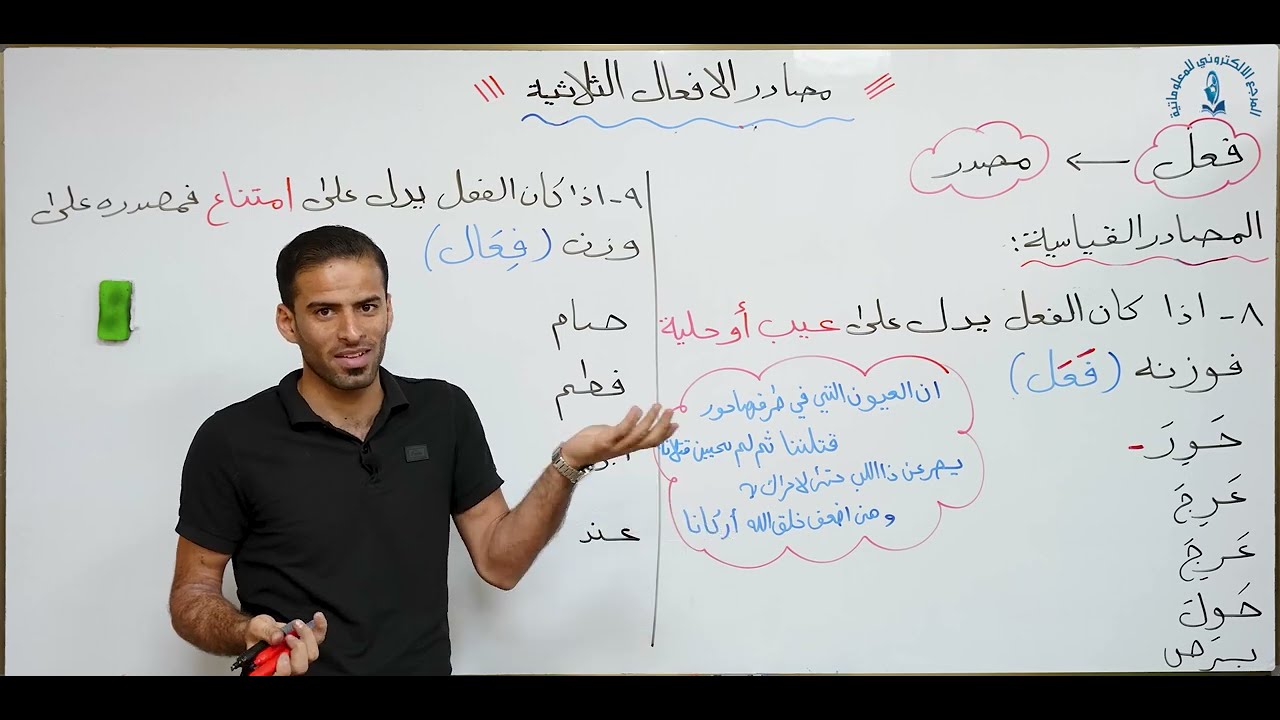 مصادر الافعال الثلاثية
المرجع الالكتروني للمعلوماتية
فعل ← مصدر
المصادر القياسية:
٨- اذا كان الفعل يدل على عيب أو حلية
فوزنه (فَعَل)
حَوِرَ -
عَرِجَ
عَرِجَ
حَوِلَ
برص
ان العيون التي في طرفها حور
قتلننا ثم لم يحيين قتلانا
يصرعن ذا اللب حتى لا حراك به
وهن اضعف خلق الله أركانا
٩- اذا كان الفعل يدل على امتناع فمصدره على
وزن (فِعَال)
صام
فطم
عند